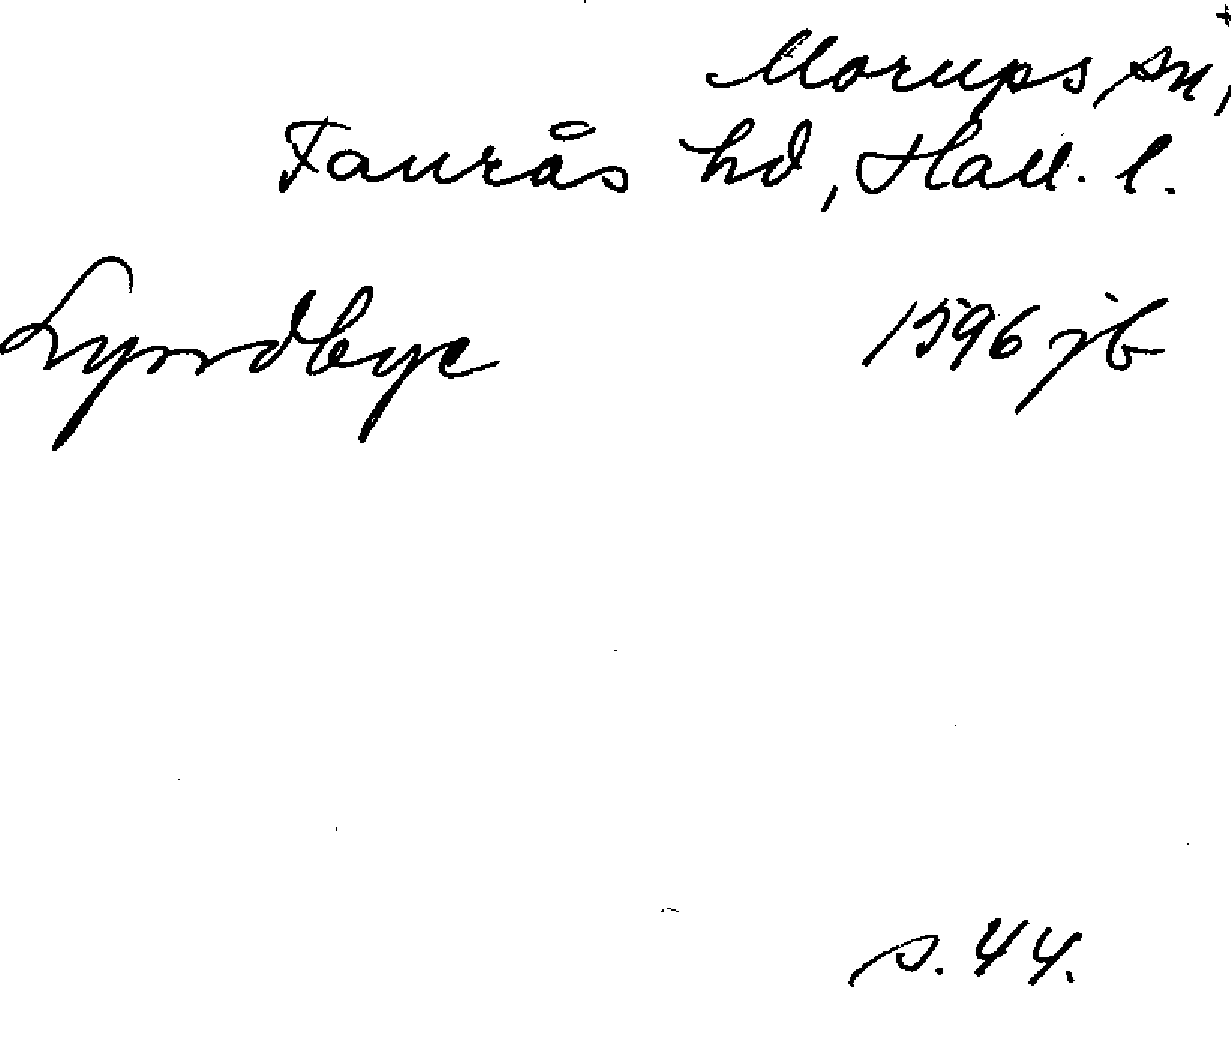 Morups sn,
Faurås hd, Hall. l.
Lyrrdbye 1596 jb
s. 44.